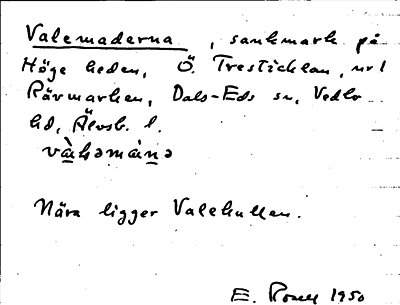 Valemaderna, sankmark på
Höge heden, Ö. Tresticklan, nr 1
Rävmarken, Dals-Eds sn, Vedbo
hd, Älvsb. l.
vàləmànə
Nära ligger Valekullen.
E. 1950